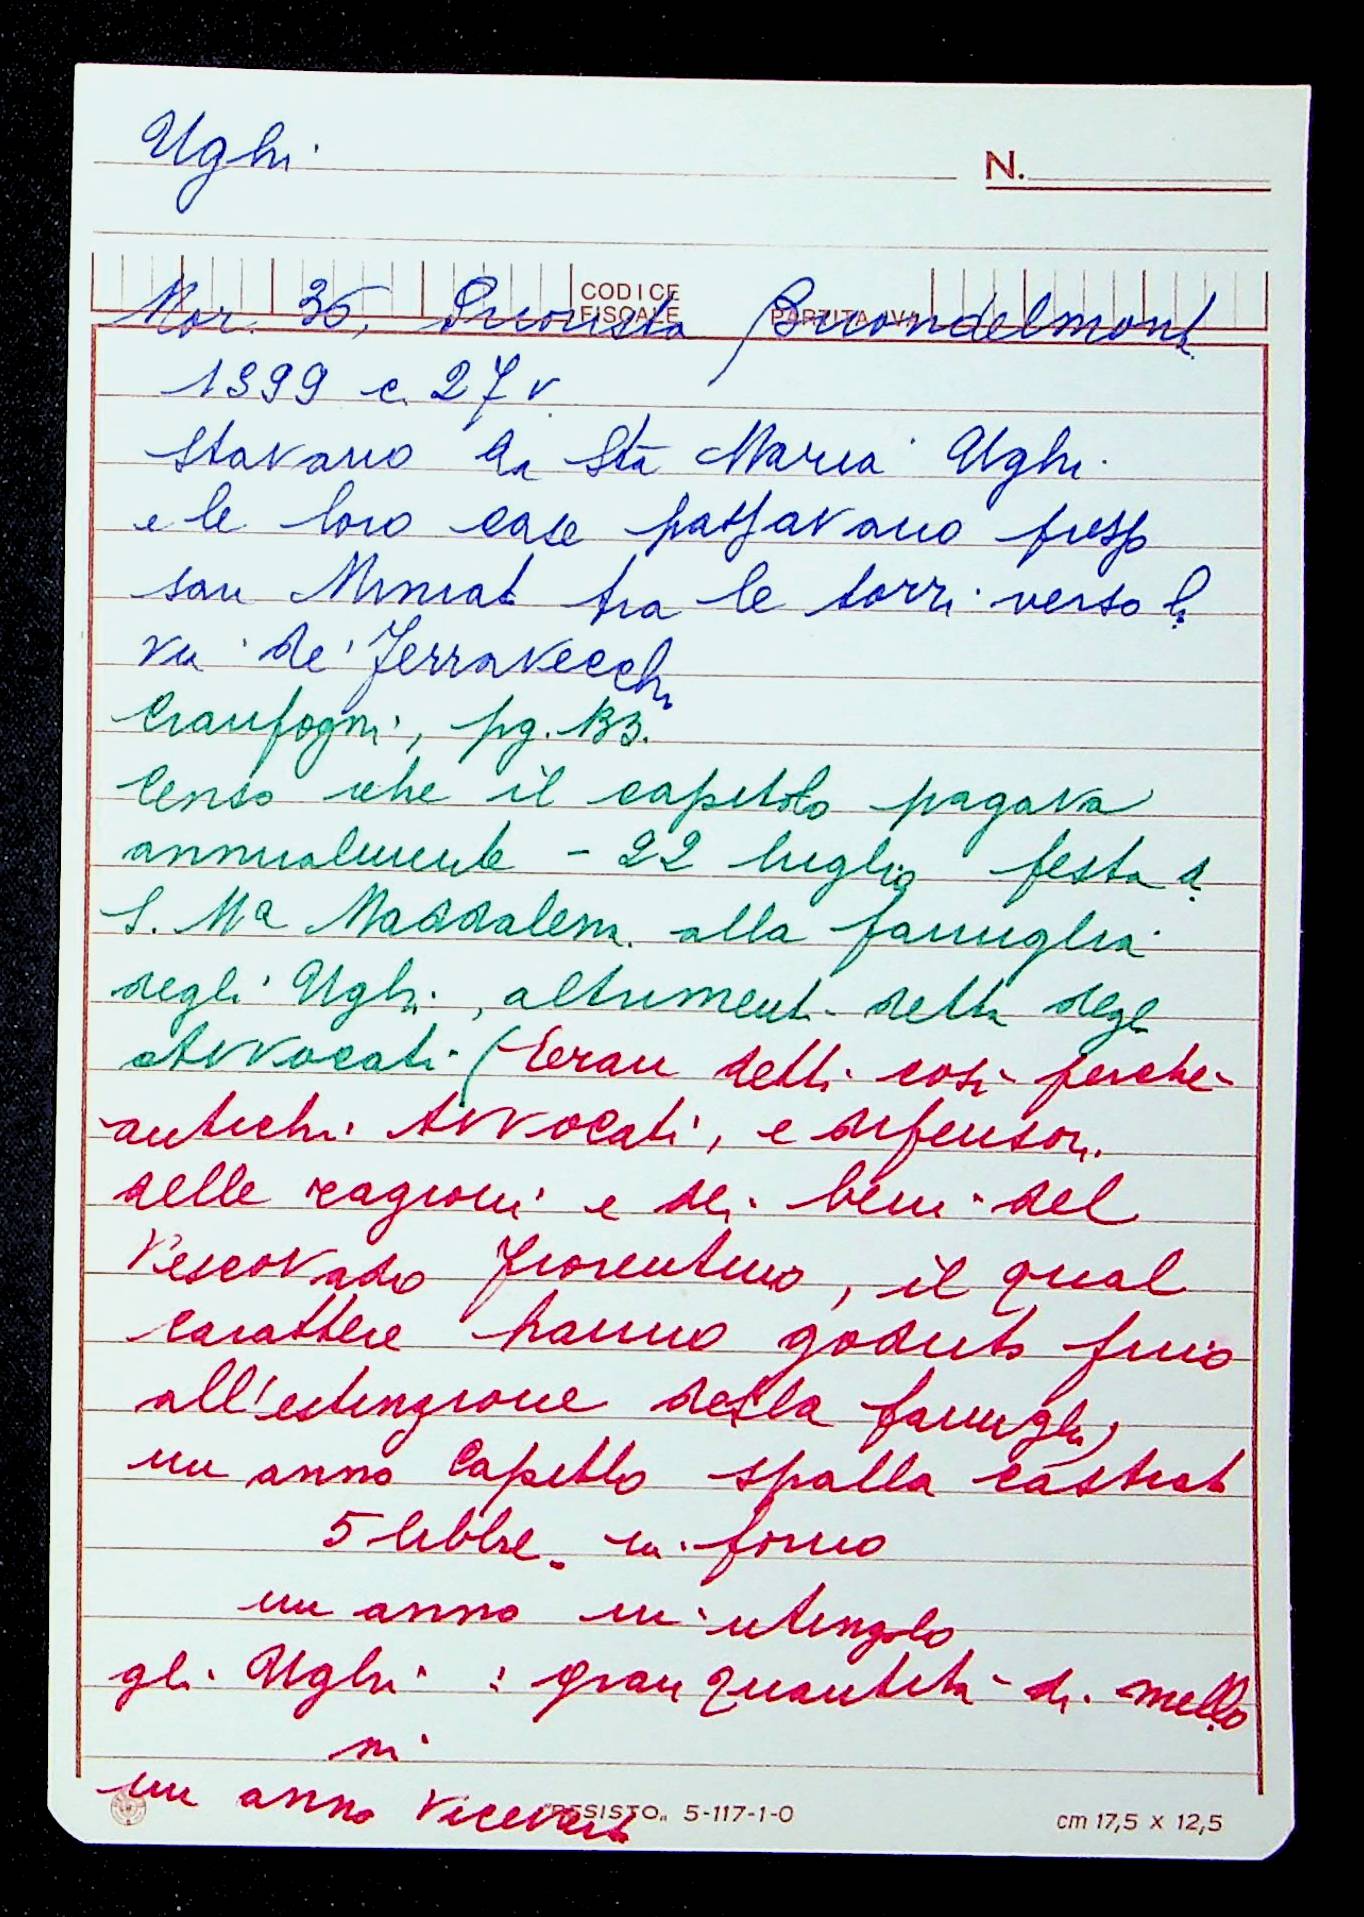 Ughi
N.
CODICE FISCALE PARTITA IVA
Mor. 36, Priorista Buondelmonti
1399 c. 27 v
stavano da Sta Maria Ughi
e le loro case passavano presso
san Miniat tra le torri verso la
via de' Ferravecchi
Cianfogni, pg. 133.
Censo che il capitolo pagava
annualmente - 22 luglio festa di
S. Ma Maddalena alla famiglia
degli Ughi, altrimenti detta degli
Avvocati (Eran detti così perché
antichi Avvocati, e difensori
delle ragioni e dei beni del
Vescovado Fiorentino, il qual
carattere hanno goduto fino
all'estinzione della famiglia)
un anno Capitolo spalla castrato
5 libbre in forno
un anno in intingolo
gli Ughi : gran quantità di mello
ni
un anno viceversa
"RESISTO„ 5-117-1-0
cm 17,5 x 12,5